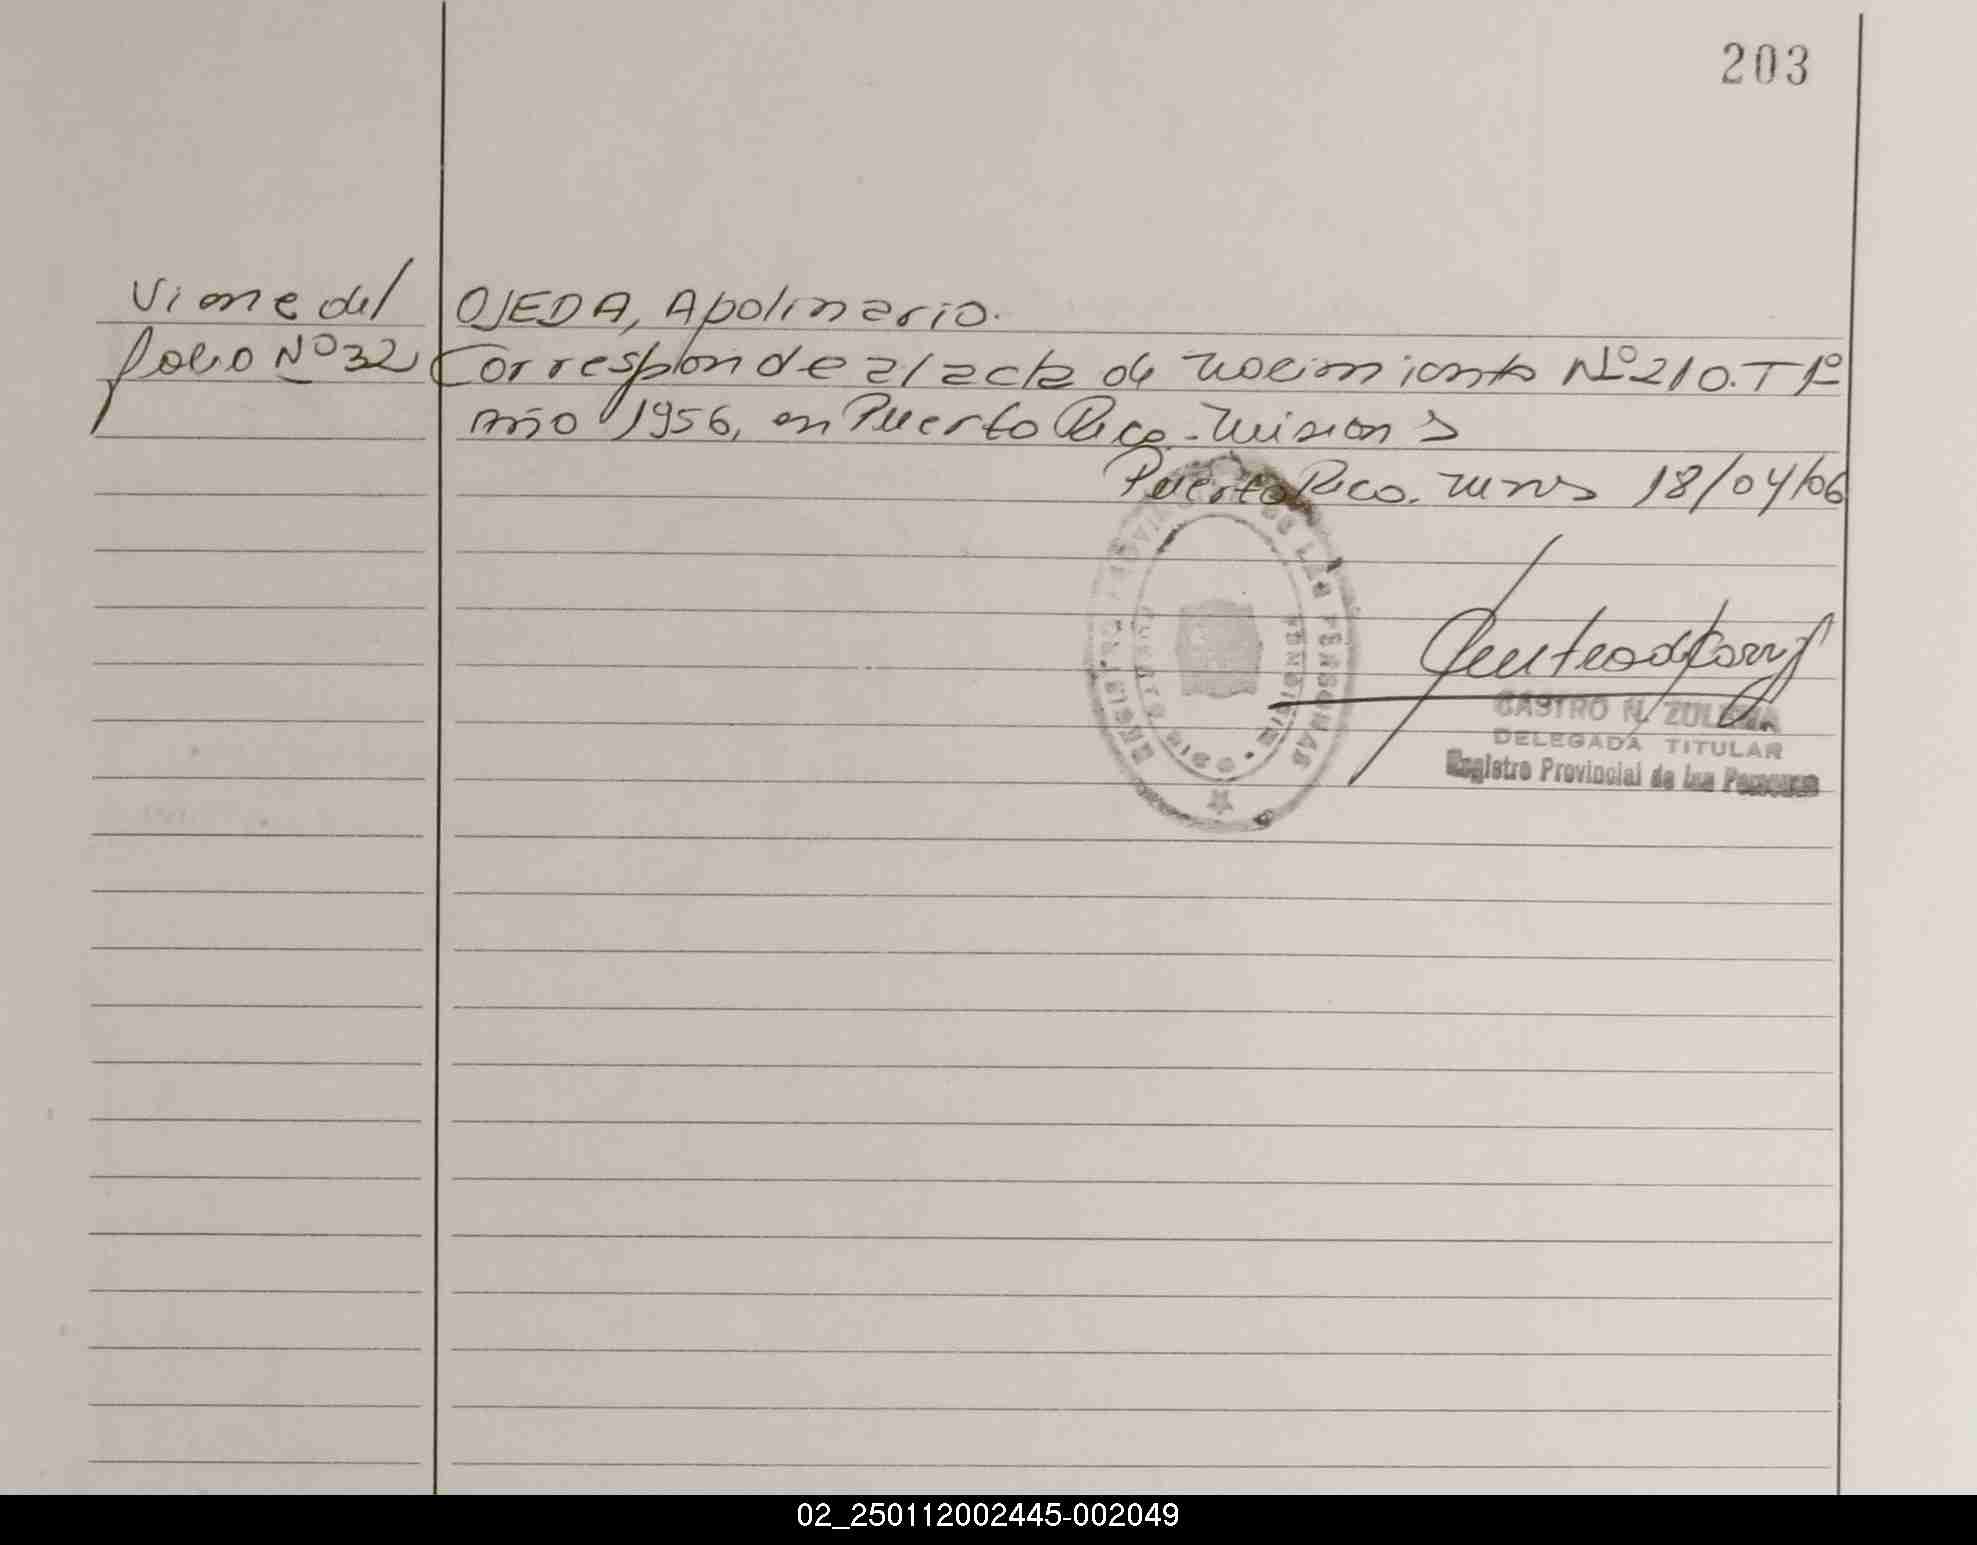 203
Viene del
folio Nº 32
OJEDA, Apolinario.
Corresponde al acta de nacimiento Nº 210. T 1º
Año 1956, en Puerto Rico - Misiones
Puerto Rico. Mnes 18/04/06
REGISTRO PROVINCIAL DE LAS PERSONAS
PUERTO RICO • MISIONES
CASTRO N. ZULEMA
DELEGADA TITULAR
Registro Provincial de las Personas
02_250112002445-002049